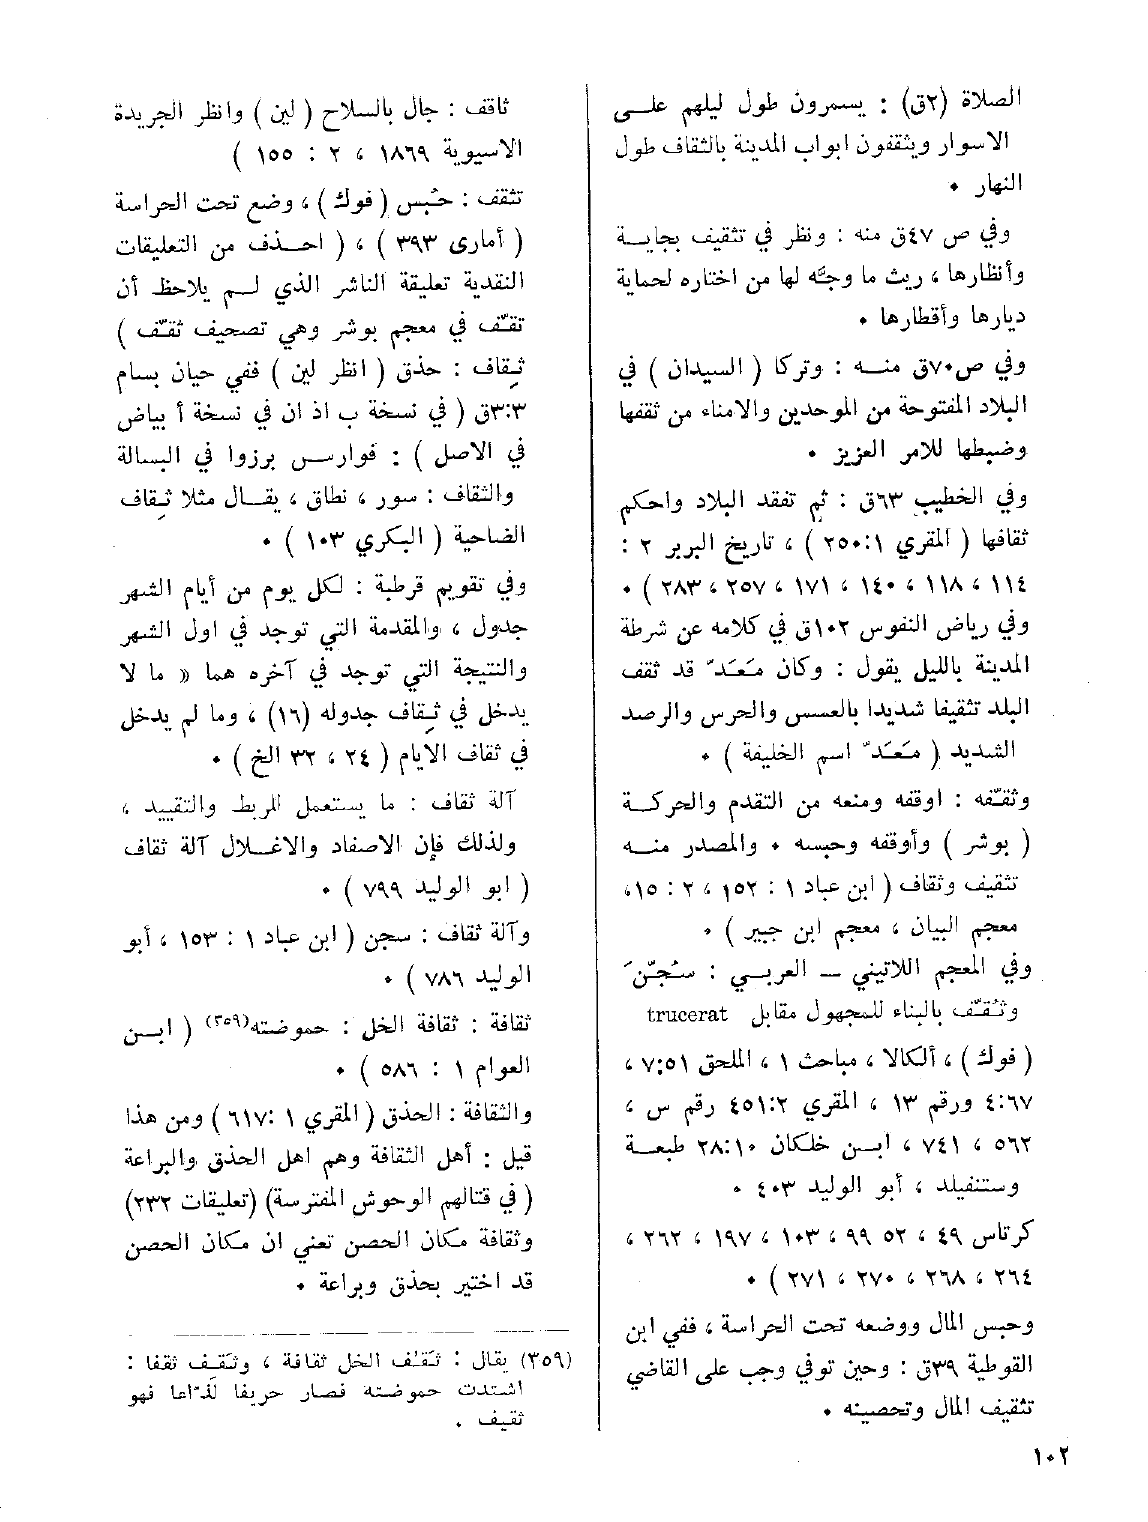 الصلاة (٢ق) : يسمرون طول ليلهم على
الاسوار ويثقفون ابواب المدينة بالثقاف طول
النهار ٠
وفي ص ٤٧ق منه : ونظر في تثقيف بجاية
وأنظارها ، ريث ما وجَّه لها من اختاره لحماية
ديارها وأقطارها ٠
وفي ص٧٠ق منه : وتركا ( السيدان ) في
البلاد المفتوحة من الموحدين والامناء من ثقفها
وضبطها للامر العزيز ٠
وفي الخطيب ٦٣ق : ثم تفقد البلاد واحكم
ثقافها ( المقري ٢٥٠:١ ) ، تاريخ البربر ٢ :
١١٤ ، ١١٨ ، ١٤٠ ، ١٧١ ، ٢٥٧ ، ٢٨٣ ) ٠
وفي رياض النفوس ١٠٢ق في كلامه عن شرطة
المدينة بالليل يقول : وكان مَعَدّ قد ثقف
البلد تثقيفا شديدا بالعسس والحرس والرصد
الشديد ( مَعَدّ اسم الخليفة ) ٠
وثقّفه : اوقفه ومنعه من التقدم والحركة
( بوشر ) وأوقفه وحبسه ٠ والمصدر منه
تثقيف وثقاف ( ابن عباد ١ : ١٥٢ ، ٢ : ١٥،
معجم البيان ، معجم ابن جبير ) ٠
وفي المعجم اللاتيني – العربي : سُجّنَ
وثُقّف بالبناء للمجهول مقابل trucerat
( فوك ) ، ألكالا ، مباحث ١ ، الملحق ٧:٥١ ،
٤:٦٧ ورقم ١٣ ، المقري ٤٥١:٢ رقم س ،
٥٦٢ ، ٧٤١ ، ابن خلكان ٢٨:١٠ طبعة
وستنفيلد ، أبو الوليد ٤٠٣ ٠
كرتاس ٤٩ ، ٥٢ ٩٩ ، ١٠٣ ، ١٩٧ ، ٢٦٢ ،
٢٦٤ ، ٢٦٨ ، ٢٧٠ ، ٢٧١ ) ٠
وحبس المال ووضعه تحت الحراسة ، ففي ابن
القوطية ٣٩ق : وحين توفي وجب على القاضي
تثقيف المال وتحصينه ٠
ثاقف : جال بالسلاح ( لين ) وانظر الجريدة
الاسيوية ١٨٦٩ ، ٢ : ١٥٥ )
تثقف : حُبس ( فوك ) ، وضع تحت الحراسة
( أماري ٣٩٣ ) ، ( احذف من التعليقات
النقدية تعليقة الناشر الذي لم يلاحظ أن
تقّف في معجم بوشر وهي تصحيف ثقّف )
ثِقاف : حذق ( انظر لين ) ففي حيان بسام
٣:٣ق ( في نسخة ب اذ ان في نسخة أ بياض
في الاصل ) : فوارس برزوا في البسالة
والثقاف : سور ، نطاق ، يقال مثلا ثِقاف
الضاحية ( البكري ١٠٣ ) ٠
وفي تقويم قرطبة : لكل يوم من أيام الشهر
جدول ، والمقدمة التي توجد في اول الشهر
والنتيجة التي توجد في آخره هما « ما لا
يدخل في ثِقاف جدوله (١٦) ، وما لم يدخل
في ثقاف الايام ( ٢٤ ، ٣٢ الخ ) ٠
آلة ثقاف : ما يستعمل للربط والتقييد ،
ولذلك فإن الاصفاد والاغلال آلة ثقاف
( ابو الوليد ٧٩٩ ) ٠
وآلة ثقاف : سجن ( ابن عباد ١ : ١٥٣ ، أبو
الوليد ٧٨٦ ) ٠
ثقافة : ثقافة الخل : حموضته(٣٥٩) ( ابن
العوام ١ : ٥٨٦ ) ٠
والثقافة : الحذق ( المقري ١ :٦١٧ ) ومن هذا
قيل : أهل الثقافة وهم اهل الحذق والبراعة
( في قتالهم الوحوش المفترسة) (تعليقات ٢٣٢)
وثقافة مكان الحصن تعني ان مكان الحصن
قد اختير بحذق وبراعة ٠
(٣٥٩) يقال : ثَقُف الخل ثقافة ، وثَقِف ثقفا :
اشتدت حموضته فصار حريفا لذّاعا فهو
ثقيف .
١٠٢